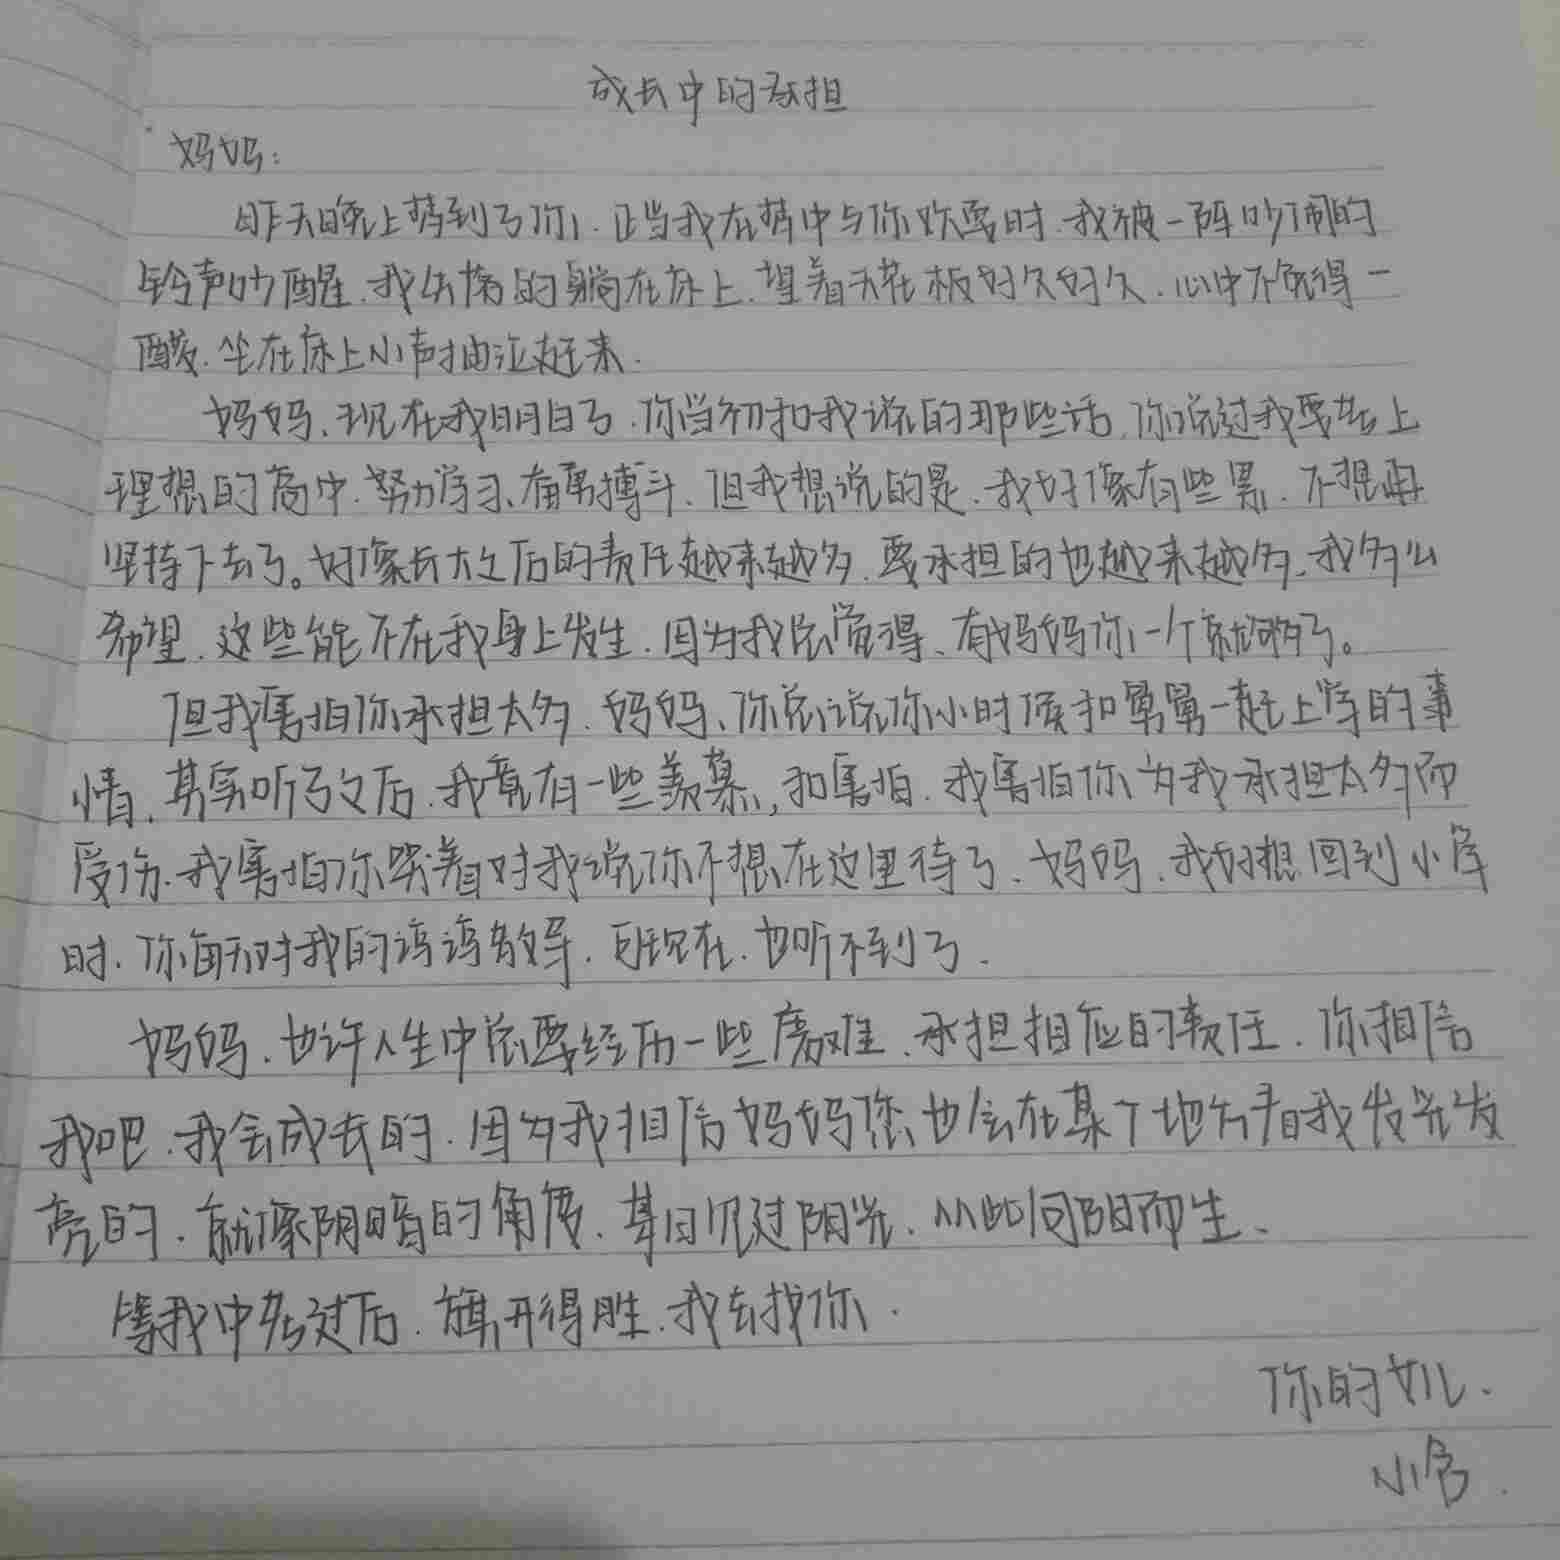 成长中的承担
妈妈：
昨天晚上梦到了你，正当我在梦中与你欢耍时，我被一阵吵闹的
铃声吵醒，我失落的躺在床上，望着天花板好久好久，心中不免得一
酸，坐在床上小声抽泣起来．
妈妈，现在我明白了，你当初和我说的那些话，你说过我要去上
理想的高中，努力学习，奋勇搏斗，但我想说的是，我好像有些累，不想再
坚持下去了。好像长大之后的责任越来越多，要承担的也越来越多，我多么
希望，这些能不在我身上发生，因为我总觉得，有妈妈你一个就够了。
但我害怕你承担太多，妈妈，你总说你小时候和舅舅一起上学的事
情，其实听了之后，我竟有一些羡慕，和害怕，我害怕你为我承担太多而
受伤，我害怕你哭着对我说你不想在这里待了，妈妈，我好想回到小学
时，你每天对我的谆谆教导，可现在，也听不到了．
妈妈，也许人生中总要经历一些磨难，承担相应的责任，你相信
我吧，我会成长的，因为我相信妈妈您也会在某个地方看我发光发
亮的，就像阴暗的角度，某日见过阳光，从此向阳而生、
等我中考过后，旗开得胜，我去找你．
你的女儿．